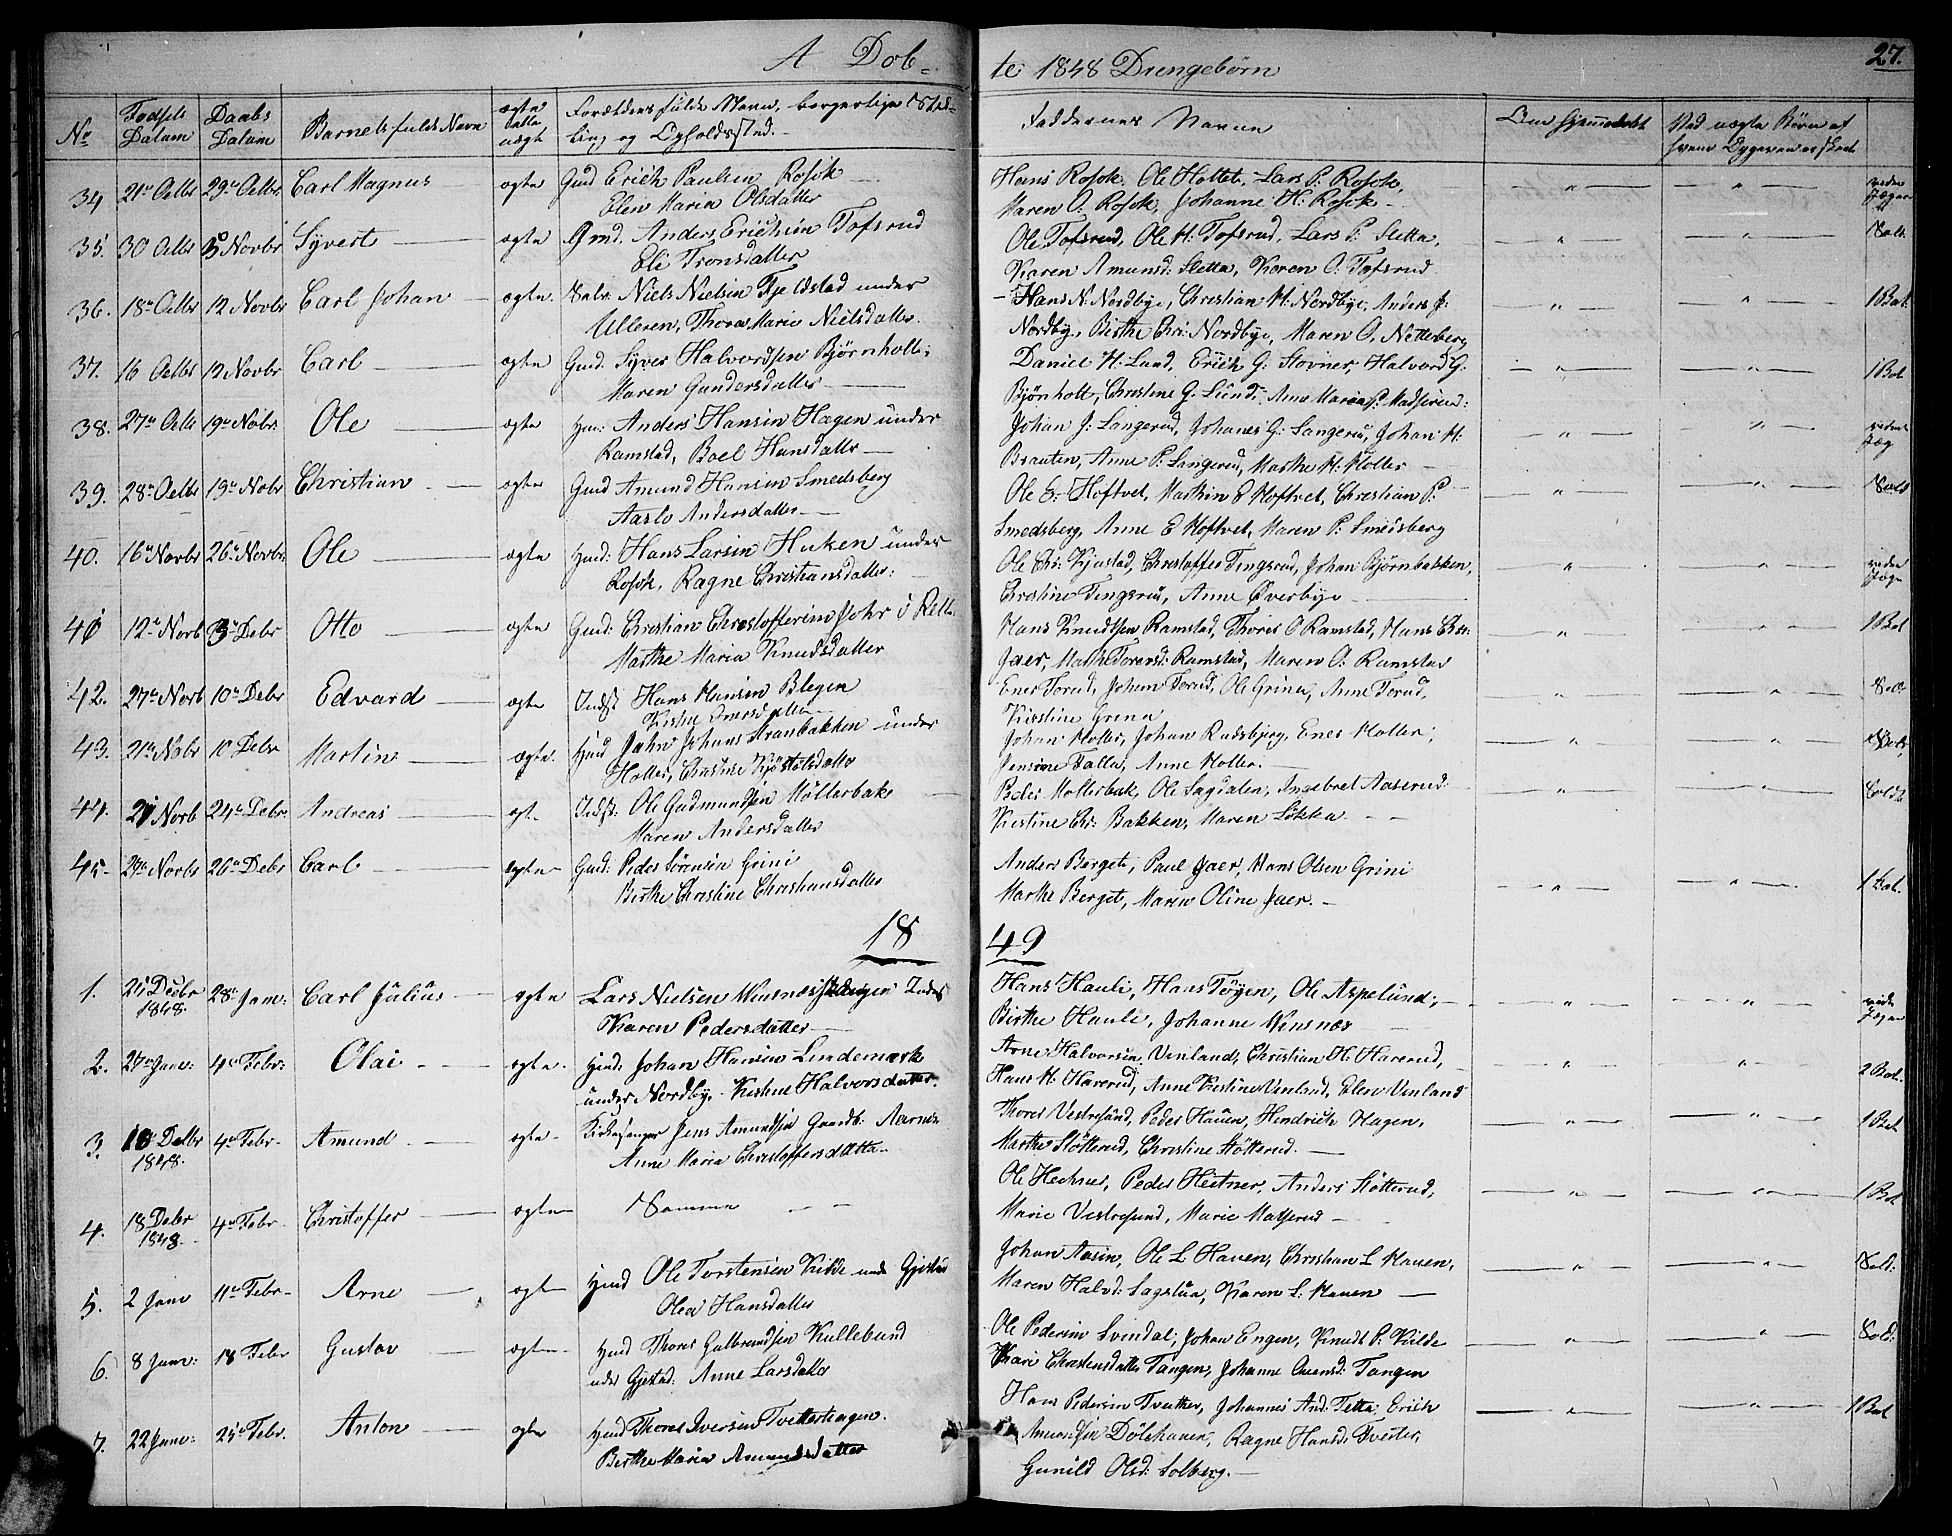 A Döb-
te 1848 Drengebörn
27.
No
Fødsels Datum
Daabs Datum
Barnets fulde Navn
ægte eller uægt
Forældrenes fulde Navn, borgerlige Stil-
ling og Opholdssted.
Faddernes Navne
Om hjemmedøbt
Ved uægte Børn af
34 21de Octbr 29de Octbr. Carl Magnus — ægte Gmd Erich Paulsen Rosok —
Elen Maria Olsdatter
Hans Rosok, Ole Holtet, Lars P. Rosok,
Maren O. Rosok, Johanne H. Rosok —
35. 30 Octbr 5 Novbr Syvert — ægte Gmd. Anders Erichsen Tofsrud
Eli Tronsdatter
Ole Tofsrud, Ole H. Tofsrud, Lars P. Sletta,
Karen Amunsd: Sletta, Karen O. Tofsrud
36. 18de Octbr 12 Novbr Carl Johan — ægte. Selv. Niels Nielsen Fjeldstad under
Ulleren, Thora Marie Nielsdatter
- Hans N. Nordbye, Christian H. Nordbye, Anders J:
Nordby, Birthe Chr: Nordbye, Maren O. Netteberg
1 Bat.
37. 16 Octbr 12 Novbr Carl — ægte Gmd. Syver Halvordsen Bjørnholt;
Maren Gundersdatter —
Daniel H. Lund, Erich G. Stovner, Halvord G.
Bjönholt, Christine G. Lund, Anne Maria P. Madserud:
1 Bat
38. 27de Octb 19de Nobr. Ole — ægte Hm: Anders Hansen Hagen under
Ramstad, Boel Hansdatter —
Johan J. Langerud, Johanes G. Langerud, Johan H:
Braaten, Anne P. Langerud, Marthe H. Holter —
39. 28de Octbr 19de Nobr Christian — ægte Gmd Amund Hansen Smedsberg
Aaslo Andersdatter —
Ole E. Hoftvet, Mathin E Hoftvet, Christian P.
Smedsberg, Anne E Hoftvet, Maren P. Smedsberg
40. 16de Novbr 26de Novbr. Ole — ægte Hmd: Hans Larsen Huken under
Rosok, Ragne Christiansdatter:
Ole Chr: Kjustad, Christoffer Tingsrud, Johan Bjørnbakken,
Christine Tingsrud, Anne Øverbye —
41 12de Norb 3de Debr Otto — ægte Gmd: Christian Christoffersen Johr
Marthe Maria Knudsdatter
Hans Knudtsen Ramstad, Thores O Ramstad, Hans Chr:
Jaer, Marthe Torersd: Ramstad, Maren O. Ramstad
1 Bat
42. 27de Norb 10de Debr Edvard — ægte Inds: Hans Hansen Blegen
Kirstie Enersdatter
Ener Torud, Johan Torud, Ole Grina, Anne Torud,
Kirstine Grina
43. 21de Nobr 10 Debr Martin — ægte. Hmd Jahn Johans: Stranbakken under
Holter, Christine Kjöstolsdatter
Johan Holter, Johan Rudsbjerg, Ener Holter,
Jensine Falla, Anne Holter.
44. 21 Norb 24de Debr. Andreas — ægt. Inds: Ole Gudmundsen Möllerbak
Maren Andersdatter
Peder Mollerbak, Ole Sagdalen, Ingebret Aaserud
Kirstine Chr: Bakken, Maren Løkka — -
45- 29de Norbr 26de Debr Carl — ægte Gmd: Peder Sörensen Grini
Birthe Christine Christiansdatter
Anders Berget, Paul Jaer, Hans Olsen Grini
Marthe Berget, Maren Oline Jaer. —
1 Bat.
18 49
1. 25 Decbr 1848. 28de Jan: Carl Julius — ægte Lars Nielsen
Karen Pedersdatter —
Hans Hauli, Hans Töyen, Ole Aspelund,
Birthe Hauli, Johanne Vensnæs
2. 27de Jan: 4de Febr: Olai — ægte. Hmd: Johan Hansen Lindemark
under Nordby. Kirstine Halvorsdatter.
Arne Halvorsen Venland, Christian H. Harerud,
Hans H. Harerud, Anne Kirstine Venland, Elen Venland
2 Bat.
3. 18 Decbr 1848. 4de Febr. Amund — ægte. Kirkesanger Jens Amundsen
Anne Maria Christoffersdatter
Thores Vestresund, Peder Hauen, Hindrich Hagen,
Marthe Støtterud, Christine Støtterud. —
1 Bat
4. 18 Debr 1848. 4de Febr. Christoffer — ægte Samme — —
Ole Hechner, Peder Heitner, Anders Støtterud,
Marie Vestresund, Marie Matserud —
1 Bat
5. 2 Jan 11de Febr. Arne — ægte Hmd Ole Torstensen Kilde unde Gjestad
Olea Hansdatter
Johan Aasen, Ole L. Hauen, Christian L Hauen,
Maren Halvd: Sagstua, Karen L. Hauen —
Sold:
6. 8 Jan: 18 Febr Gustav — ægte. Hmd Thores Gulbrandsen Kullebund
under Gjestad. Anne Larsdatter
Ole Pedersen Svindal, Johan Engen, Knudt P. Kilde
Kari Christensdatter Tangen, Johanne Amensd. Tangen
Sold:
7. 22 Jan: 25de Febr. Anton — ægte Hmd Thores Iversen Tvetterhagen.
Birthe Maria Amundsdatter
Hans Pedersen Tvetter, Johannes And. Tetta, Erich
Amundsen Dölehauen, Ragne Hansd: Tvetter,
Gunild Olsd: Solberg. —
1 Bat